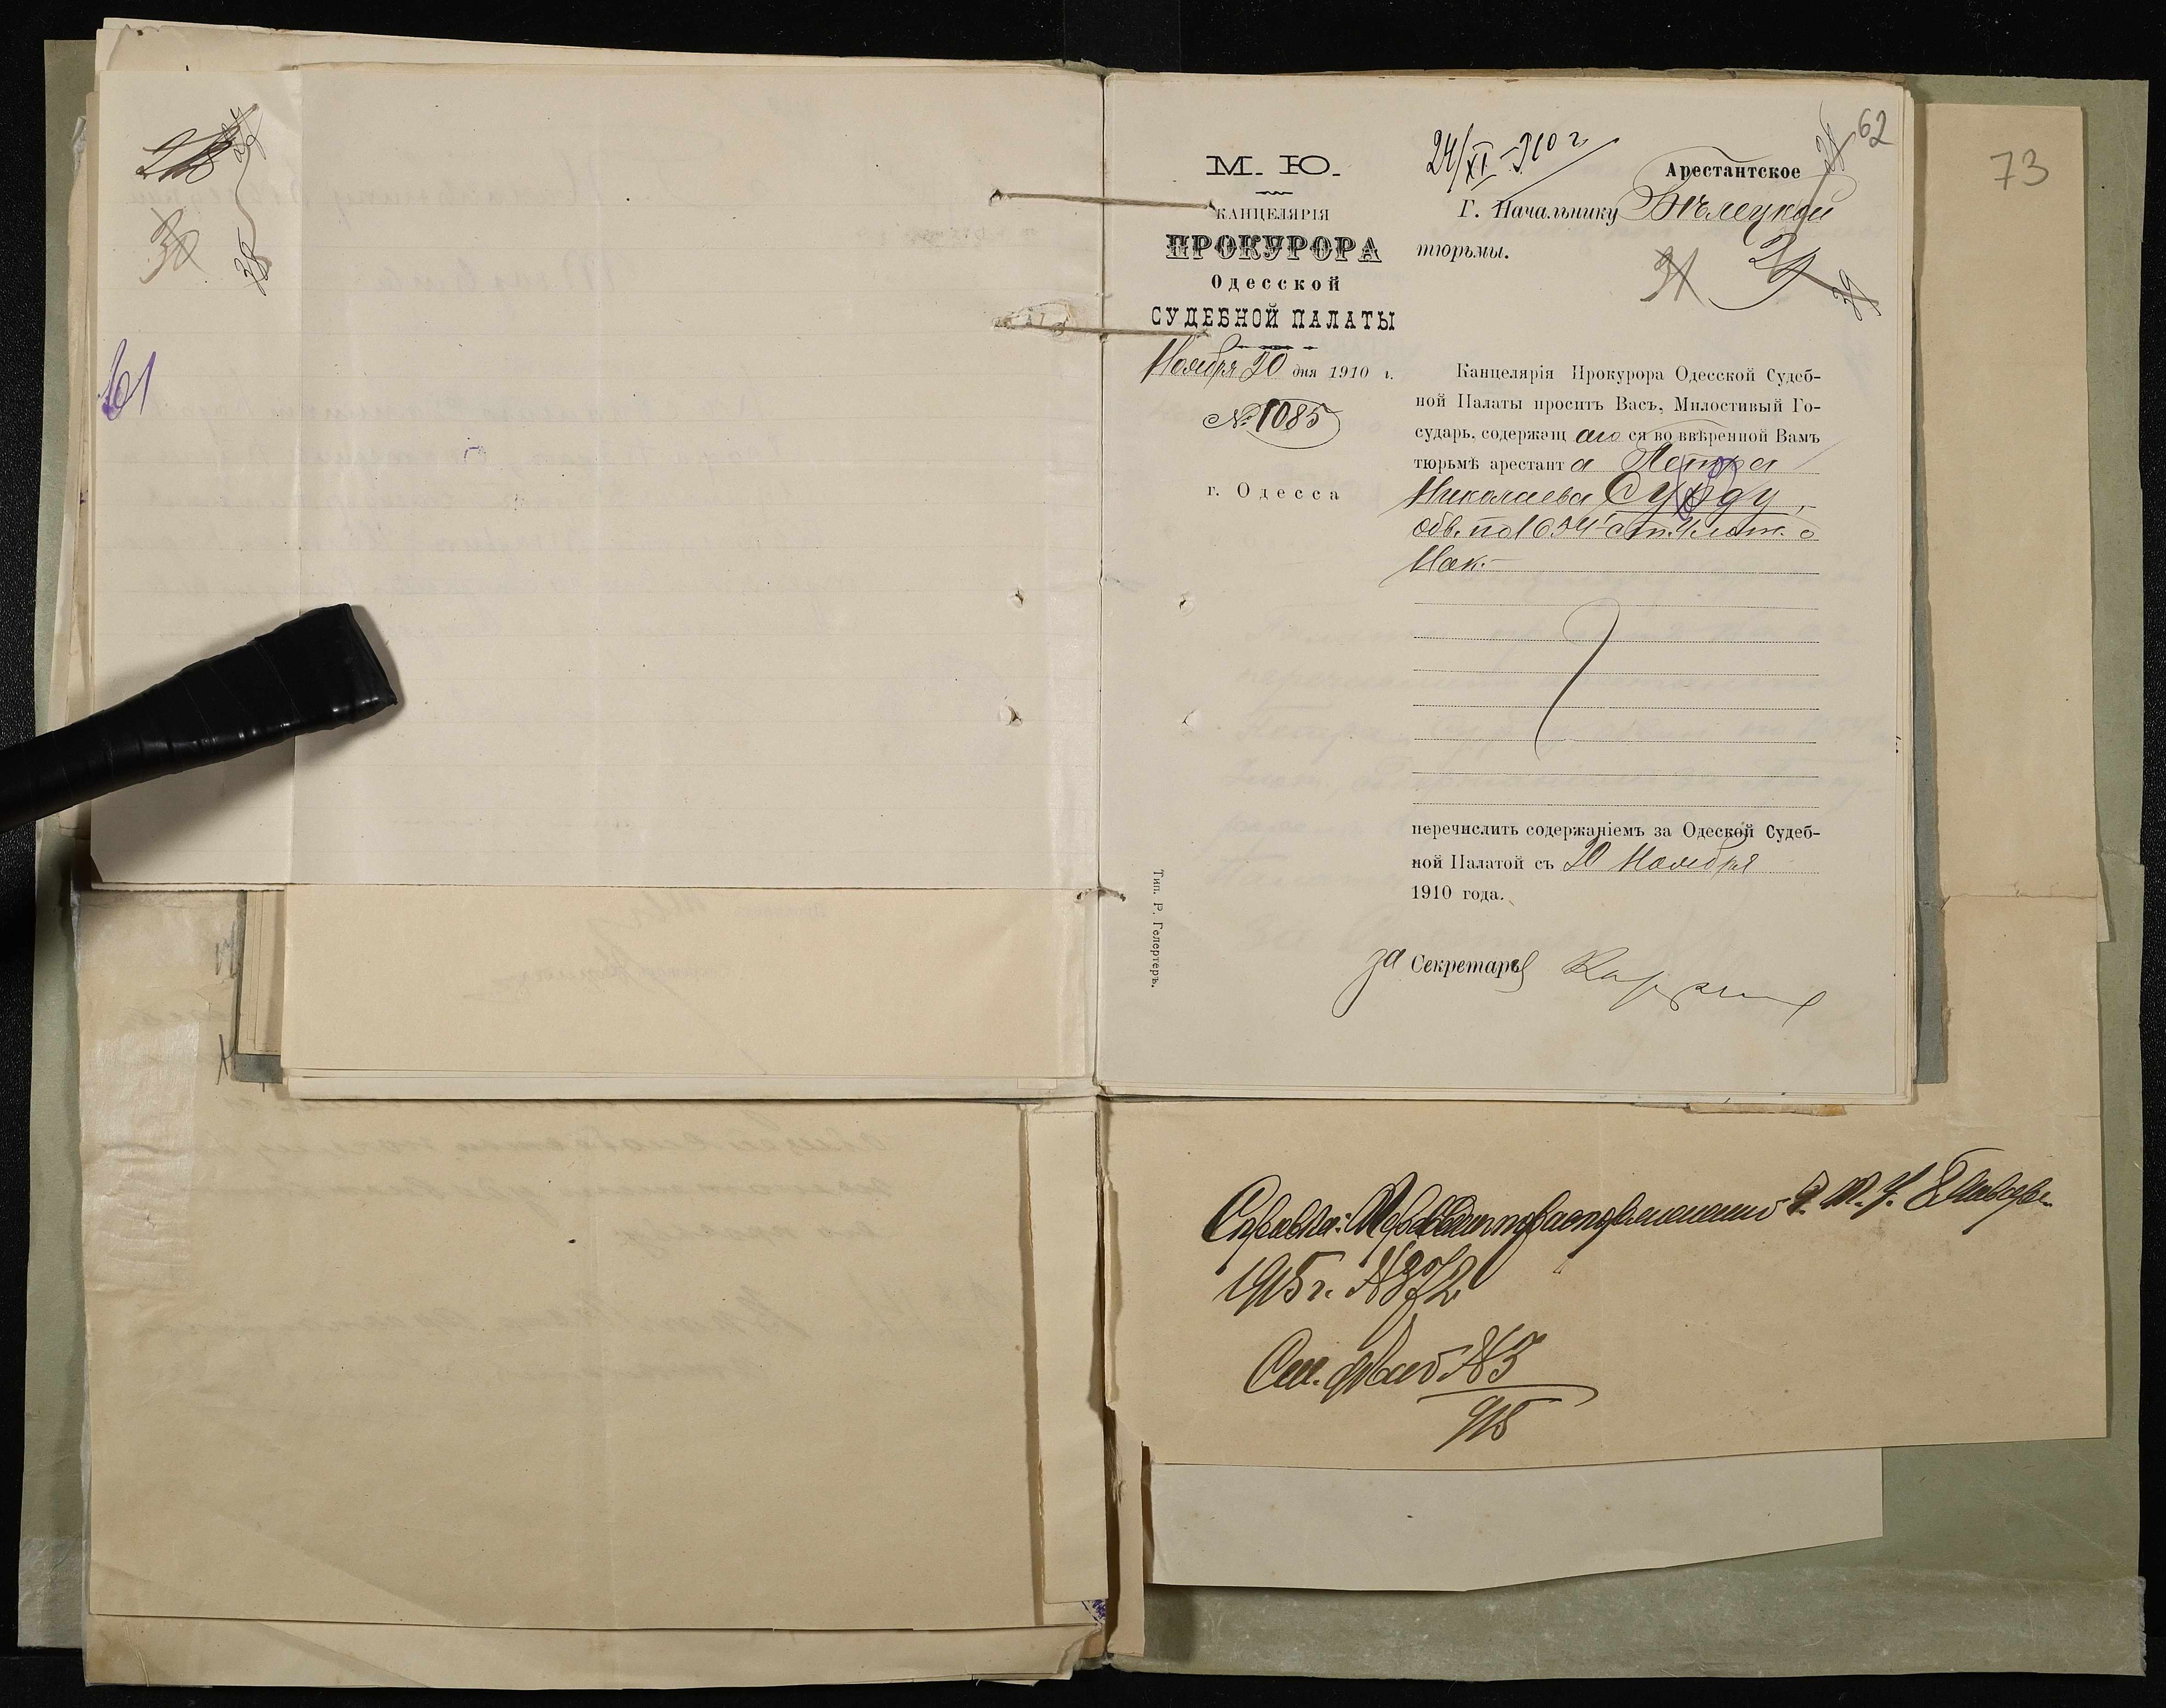 61
М. Ю.
КАНЦЕЛЯРІЯ
ПРОКУРОРА
Одесской
СУДЕБНОЙ ПАЛАТЫ
Ноября 20 дня 1910 г.
№ 1085
г. Одесса
24/XI-910 г
62
73
Арестантское
Г. Начальнику Бѣлецкой
тюрьмы.
31
29
39
Канцелярія Прокурора Одесской Судеб-
ной Палаты проситъ Васъ, Милостивый Го-
сударь, содержащ аго ся во ввѣренной Вамъ
тюрьмѣ арестант а Петра
Николаева
обв. по 1654 ст. Улож. о
Нак.
перечислить содержаніемъ за Одеской Судеб-
ной Палатой съ 20 Ноября
1910 года.
за Секретаря
Тип. Р. Гелертеръ.
Справка:
1915 г. №
См. №3
915